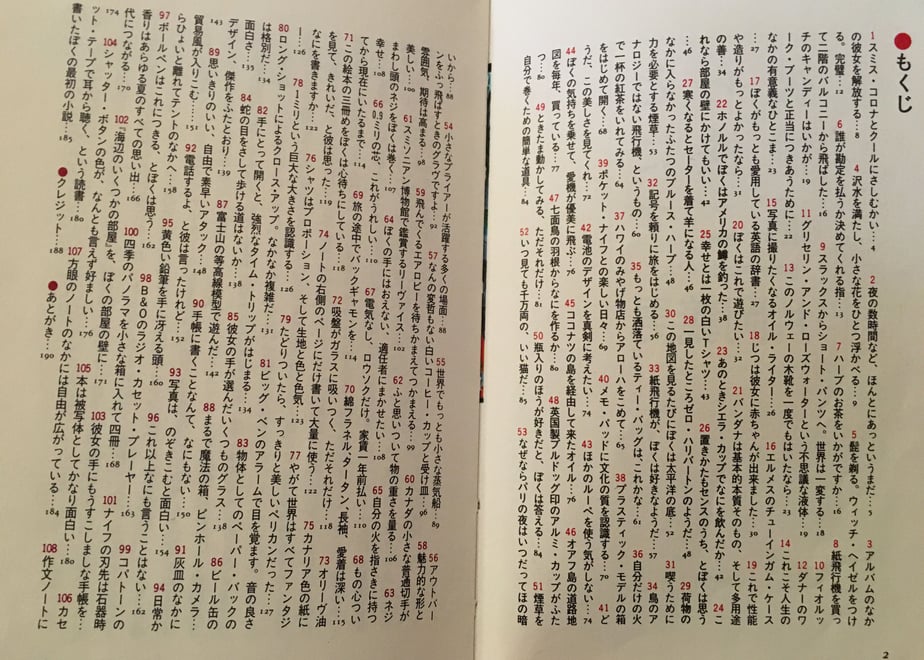 ●もくじ
1スミス・コロナとクールにさしむかい…4 2夜の数時間など、ほんとにあっというまだ…5 3アルバムのなか
の彼女を解放する…8 4沢水を満たし、小さな花をひとつ浮かべる…9 5髭を剃る。ウィッチ・ヘイゼルをつけ
る。完璧…12 6誰が勘定を払うか決めてくれる指…13 7ハーブのお茶をいかがですか…16 8紙飛行機を買っ
て二階のバルコニーから飛ばした…16 9スラックスからショート・パンツへ。世界は一変する…18 10フィオルッ
チのキャンディーはいかが…19 11グリセリン・アンド・ローズウォーターという不思議な液体…19 12ダナーのワ
ーク・ブーツと正当につきあうために…22 13このノルウェーの木靴を一度でもはいたなら…23 14これこそ人生の
なかの有意義なひとこま…23 15写真に撮りたくなるオイル・ライター…26 16エルメスのチューインガム・ケース
…27 17ぼくがもっとも愛用している英語の辞書…27 18じつは彼女に赤ちゃんが出来ました…30 19これで性能
や造りがもっとよかったなら…31 20ぼくはこれで遊びたい…32 21バンダナは基本的本質そのもの、そして多用途
の善…34 22ホノルルでぼくはアメリカの鱒を釣った…38 23あのときシエラ・カップでなにを飲んだか…42 24こ
れなら部屋の壁にかけてもいい…42 25幸せとは一枚の白いTシャツ…43 26置きかたもセンスのうち、とぼくは思う
…46 27寒くなるとセーターを着て羊になる人…46 28一見したところゼロ・ハリバートンのようだ…48 29荷物の
なかに入らなかったふたつのブルース・ハープ…48 30この地図を見るたびにぼくは太平洋の悲しみ…50 31喫うために
力を必要とする煙草…53 32記号を頼りに旅をはじめる…56 33紙飛行機が、ぼくは好きなようだ…57 34島のア
ナロジーではない飛行機、というもの…60 35もっとも洒落ているティー・バッグは、これかな…61 36自分だけの火
で一杯の紅茶をいれてみる…64 37ハワイのみやげ物店からアローハをこめて…65 38プラスティック・モデルの箱
をはじめて開く…68 39ポケット・ナイフとの楽しい日々…69 40メモ・パッドに文化の質を認識する…70 41ど
うだ、この美しさを見てくれ…72 42電池のデザインを真剣に考えたい…74 43ほかのルーペを使う気がしない…74
44ぼくの気持ちを乗せて、愛機が優美に飛ぶ…76 45ココナツの島を経由して来たオイル…76 46オアフ島の道路地
図を毎年、買っている…77 47七面鳥の羽根からなにを作るか…80 48英国製ブルドッグ印のアルミ・カップがふた
つ…80 49ときたま動かしてみる、ただそれだけ…81 50瓶入りのほうが好きだと、ぼくは答える…84 51煙草を
自分で巻くための簡単な道具…84 52いつ見ても千万両の、いい猫だ…85 53なぜならパリの夜はいつだってほの暗
2
いから…88 54小さなプライアーが活躍する多くの場面…88 55世界でもっとも小さな蒸気船…89 56アウトバー
ンをぶっ飛ばすときのグラヴですよ…92 57なんの変哲もない白いコーヒー・カップと受け皿…96 58魅力的な形と
雰囲気、期待は高まる…98 59飛んでくるエアロビーを待ちかまえてつかまえて…99 60カナダの小さな普通切手が
幸せ…102 61スミソニアン博物館で鑑賞するリーヴァイス…103 62ふと思いついて物の重さを量る…106 63ネジ
まわし頭のネジをぼくは巻く…107 64ぼくの手にはおえない、適任者にまかせた…108 65自分の火を指さきに持つ
てから現在にいたるまで…109 66 0.9ミリの芯、これがうれしい…110 67電気なし、ロウソクだけ。家賃一年前払い…110 68もの心つい
71この絵本の三冊めをぼくは心待ちにしている…118 69旅の途中でバックギャモンを…114 70綿フランネル、タータン、長袖、愛着は深い…115
を見て、きれいだ、と彼は言った…119 72吸盤がガラスに吸いつく、ただそれだけ…118 73オリーヴ油
なにを書きますか…122 74ノートの右側のページにだけ書いて大量に使う…122 75カナリア色の紙に
ー…126 76シャツはプロポーション、そして生地と色と色気…123 77やがて世界はすべてファンタジ
80ロング・ショットによるクロースアップ。なかなか複雑だ…131 78 1ミリという巨大な大きさを認識する…126 79たどりついたら、すっきりと美しいベンチだった…127
は格別だ…134 81ビッグ・ベンのアラームで目を覚ます。音の良さ
面白さ…135 82手にとって開くと、強烈なタイム・トリップがはじまる…134 83物体としてのペーパー・バックの
デザイン、傑作をふたとおり…139 84蛇の目をさして歩ける道はないか…138 85彼女の手が選んだいくつものグラス…138 86ビール缶の
…143 87富士山の等高線模型で遊んだ…142 88まるで魔法の箱、ピンホール・カメラ…
貿易風が入りこむ…151 89思いきりのいい、自由で素早いアタック…148 90手帳に書くことなんて、なにもない…150 91灰皿のなかに
らひょいと離れてテントのなかへ…159 92電話するよ、と彼は言ったけれど…152 93写真は、のぞきこむと面白い…154 94日常か
97ボールペンはこれにつきる、とぼくは思う…162 95黄色い鉛筆を手に冴える頭…160 96これ以上なにも言うことはない…162
香りはあらゆる夏のすべての思い出…166 98B&Oのラジオ・カセット・プレーヤー…163 99コパトーンの
代につながる…170 100四季のパノラマを小さな箱に入れて四冊…168 101ナイフの刃先は石器時
…174 102『海辺のいくつかの部屋』を、ぼくの部屋の壁に…171 103彼女の手にもうすこしましな手帳を…
104シャッター・ボタンの色が、なんとも言えず好ましい…176 105本は被写体としてかなり面白い…180 106カセ
ット・テープで耳から聴く、という読書…180 107方眼のノートのなかには自由が広がっている…184 108作文ノートに
書いたぼくの最初の小説…185 ●クレジット…188 ●あとがき…190